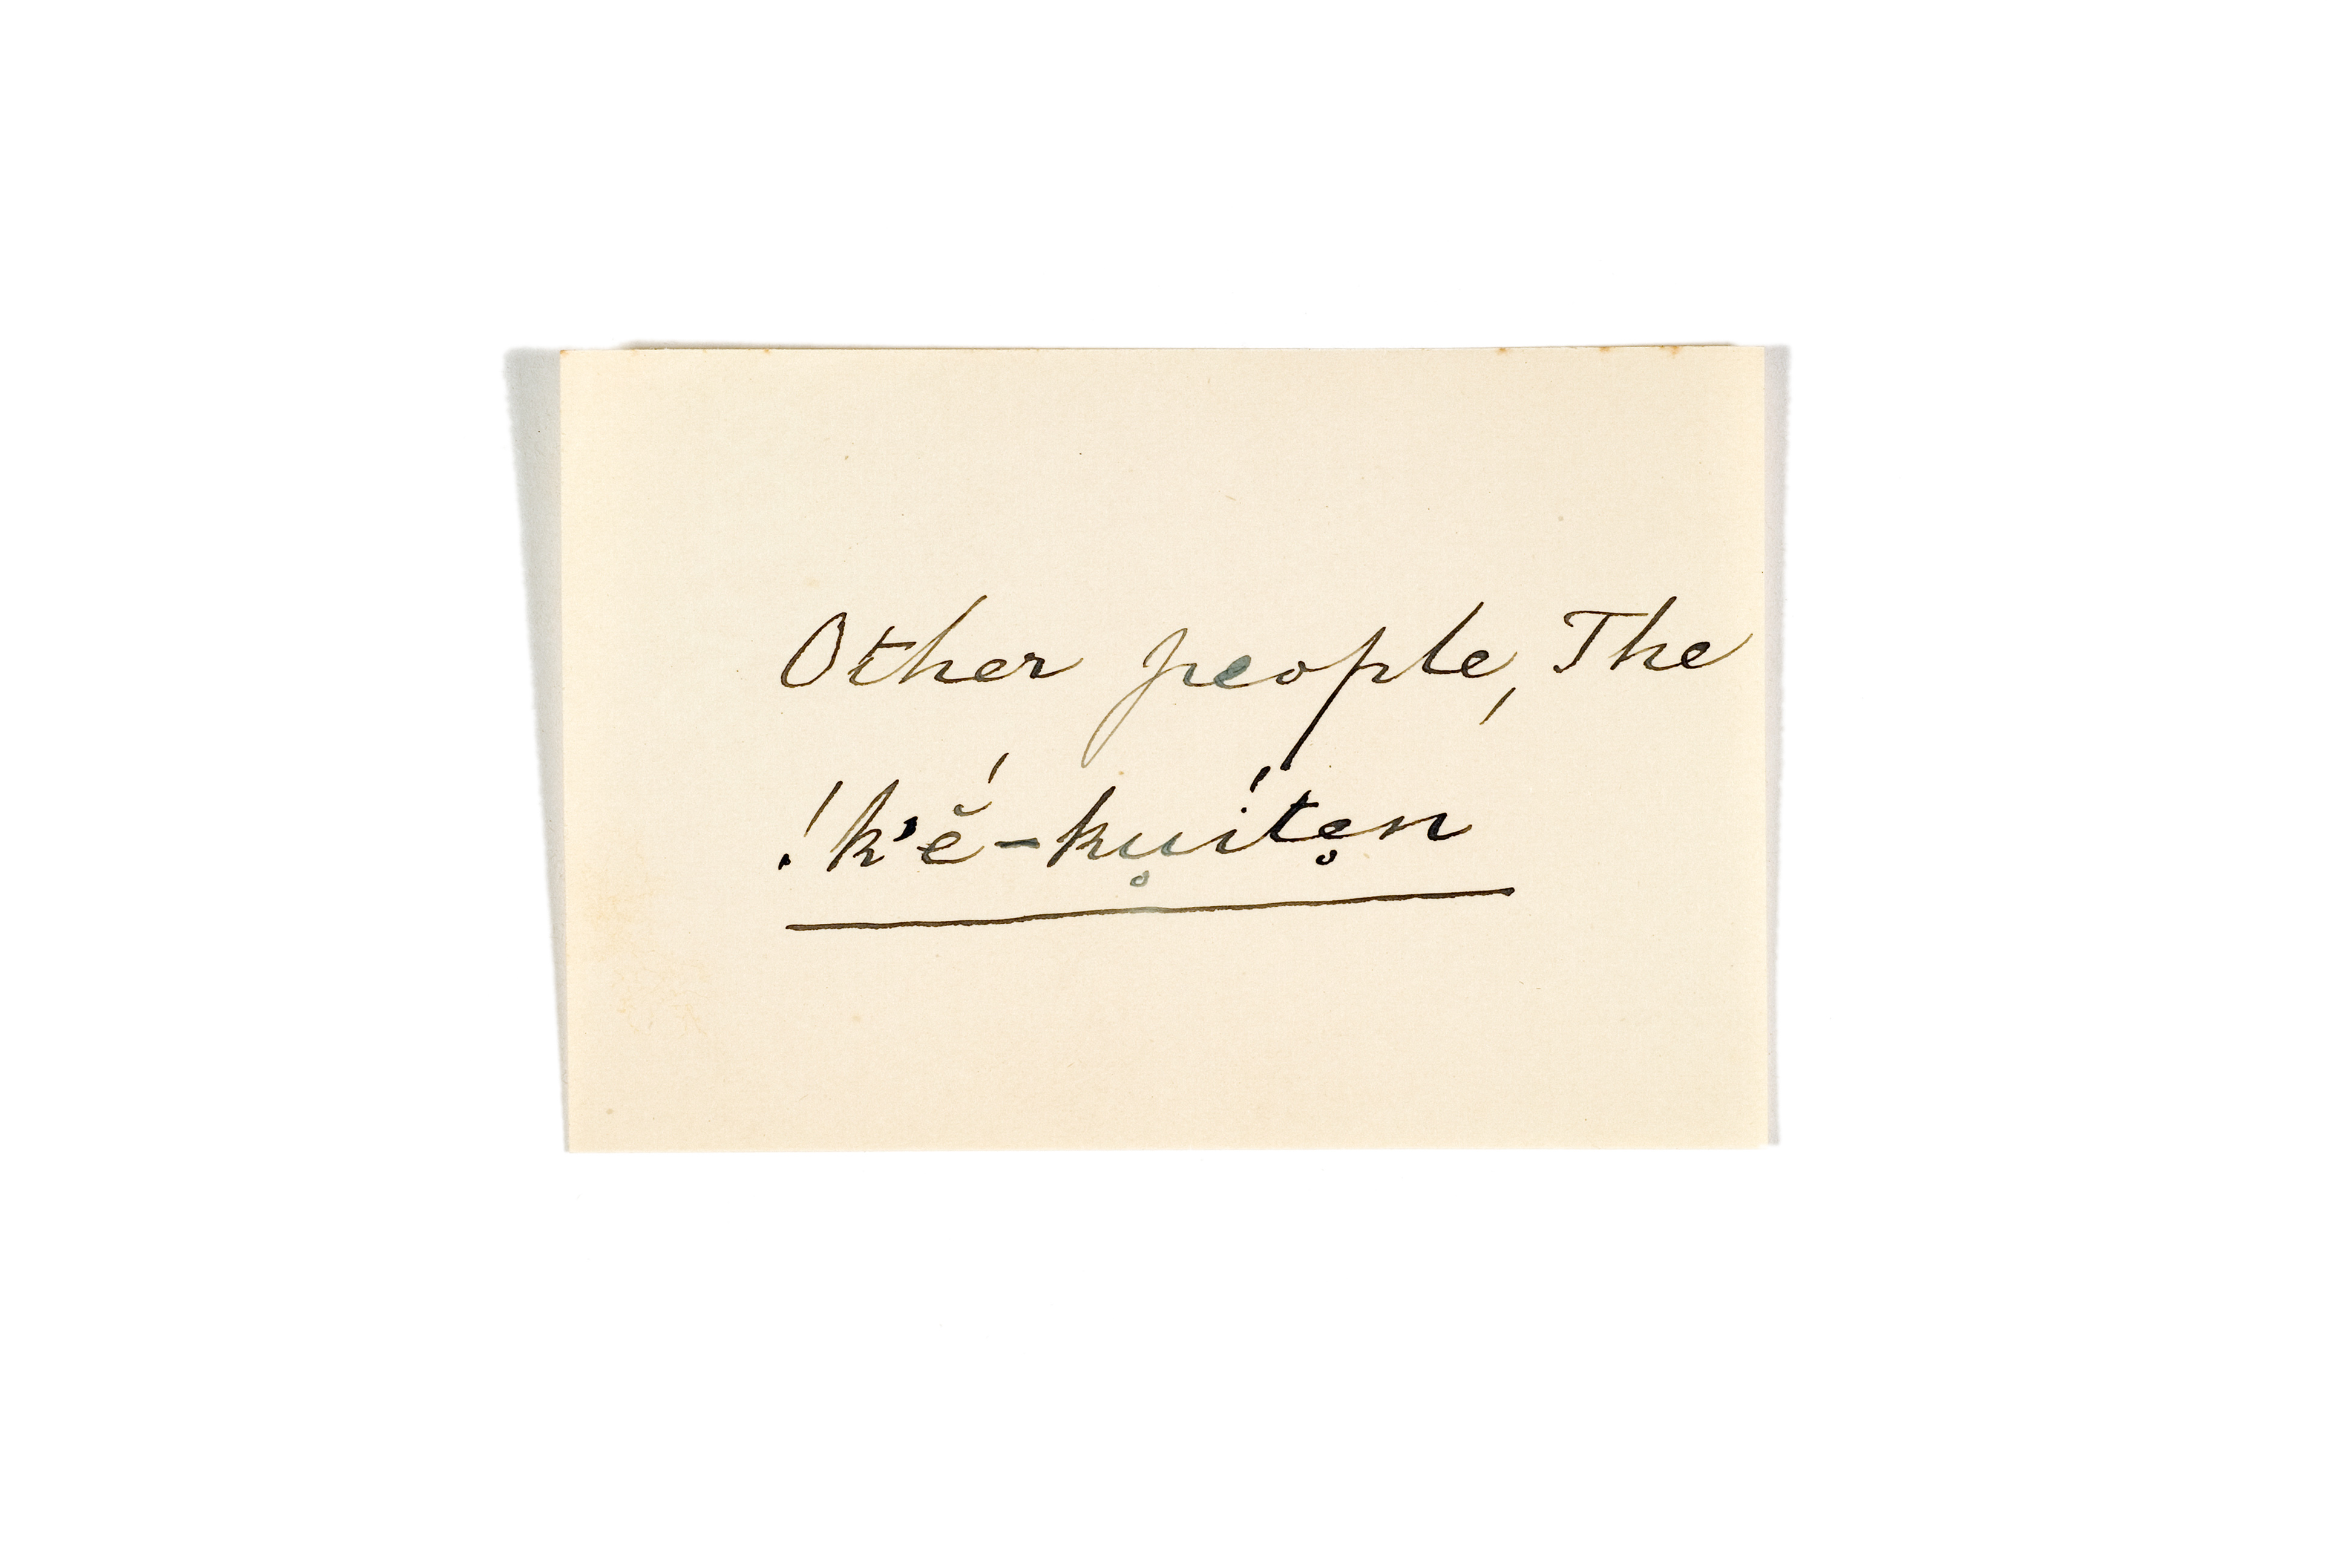 Other people, The
!k'ĕ́-ku̥íte̥n